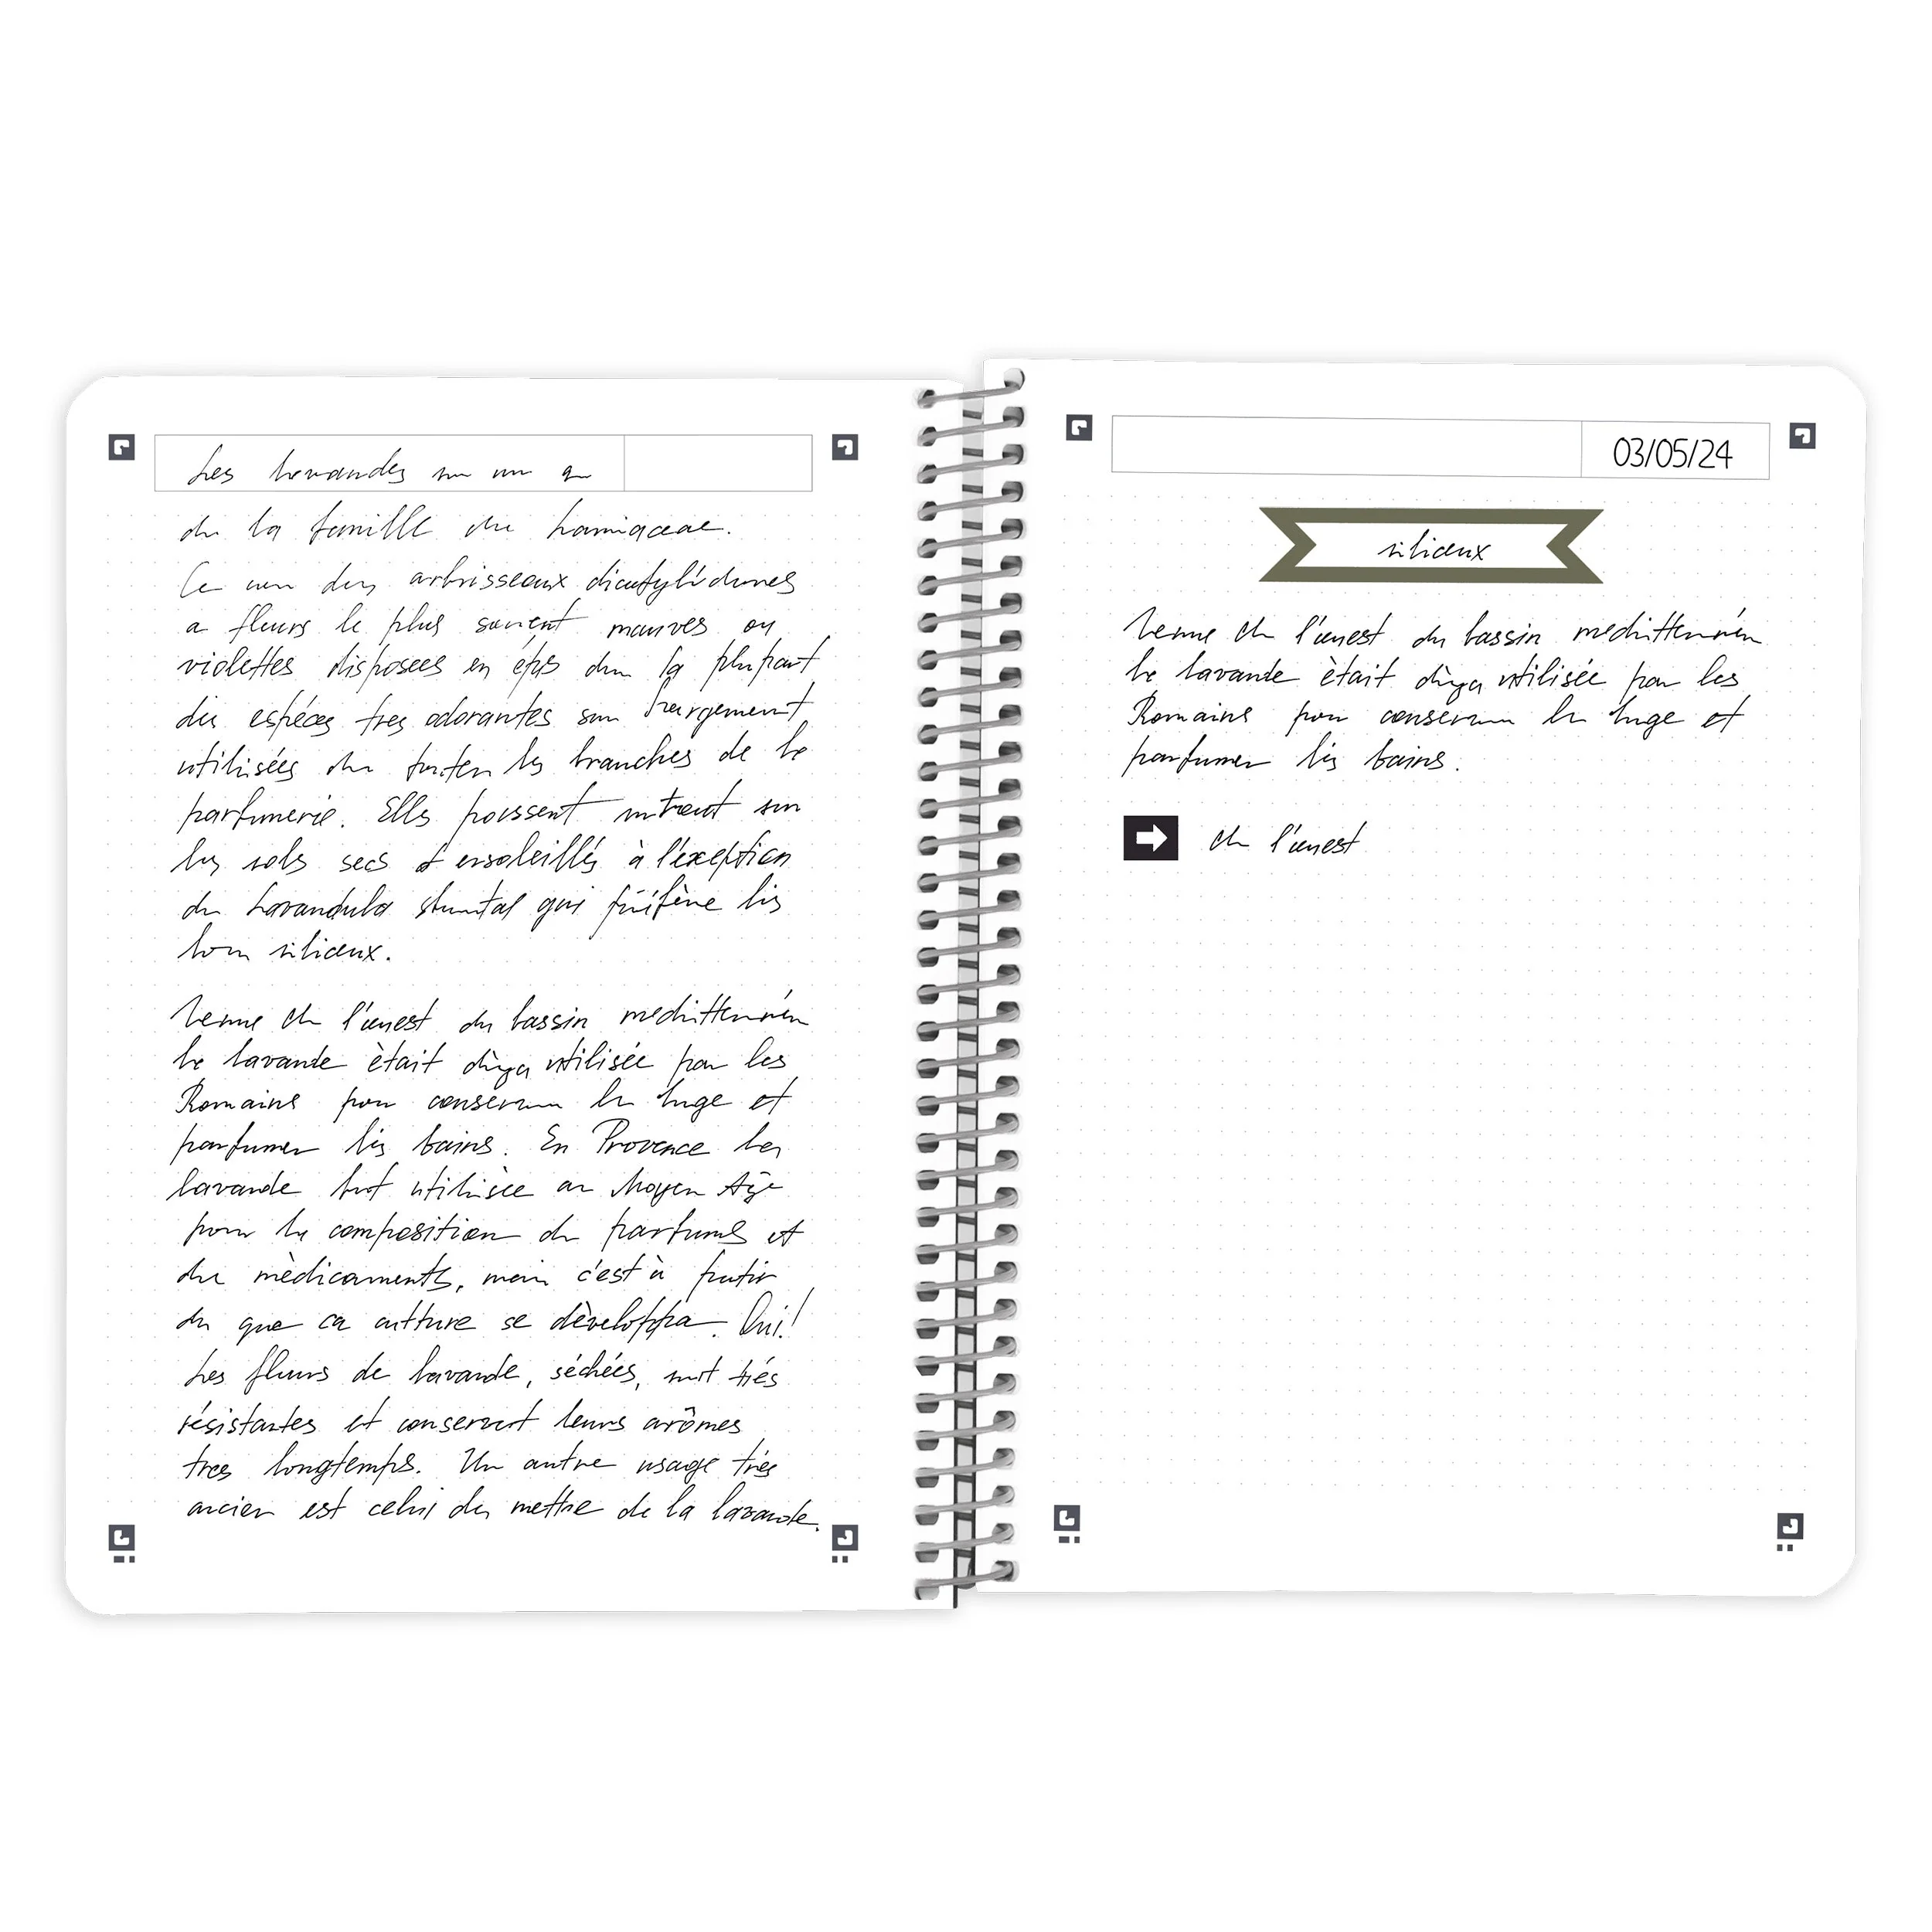 Les lavandes
de la famille des Lamiaceae.
Ce arbrisseaux dicotylédones
a fleurs le plus souvent mauves ou
violettes disposées en épis la plupart
des espéces tres odorantes sont largement
utilisées toutes les branches de la
parfumerie. Elles poussent surtout sur
les sols secs et ensoleillés à l'exeption
de Lavandula qui les
siliceux.
Venue de l'ouest du bassin
la lavande ètait utilisée par les
Romains pour conserver le linge et
parfumer les bains. En Provence la
lavande fut utilisèe au Moyen Age
pour la composition de parfums et
de mèdicaments, mais c'est à partir
du que sa culture se dèveloppa. Oui!
Les fleurs de lavande, séchées, sont trés
résistantes et conservent leurs arômes
tres longtemps. Un autre usage trés
ancien est celui de mettre de la lavande.
03/05/24
siliceux
Venue de l'ouest du bassin
la lavande ètait utilisée par les
Romains pour conserver le linge et
parfumer les bains.
de l'ouest